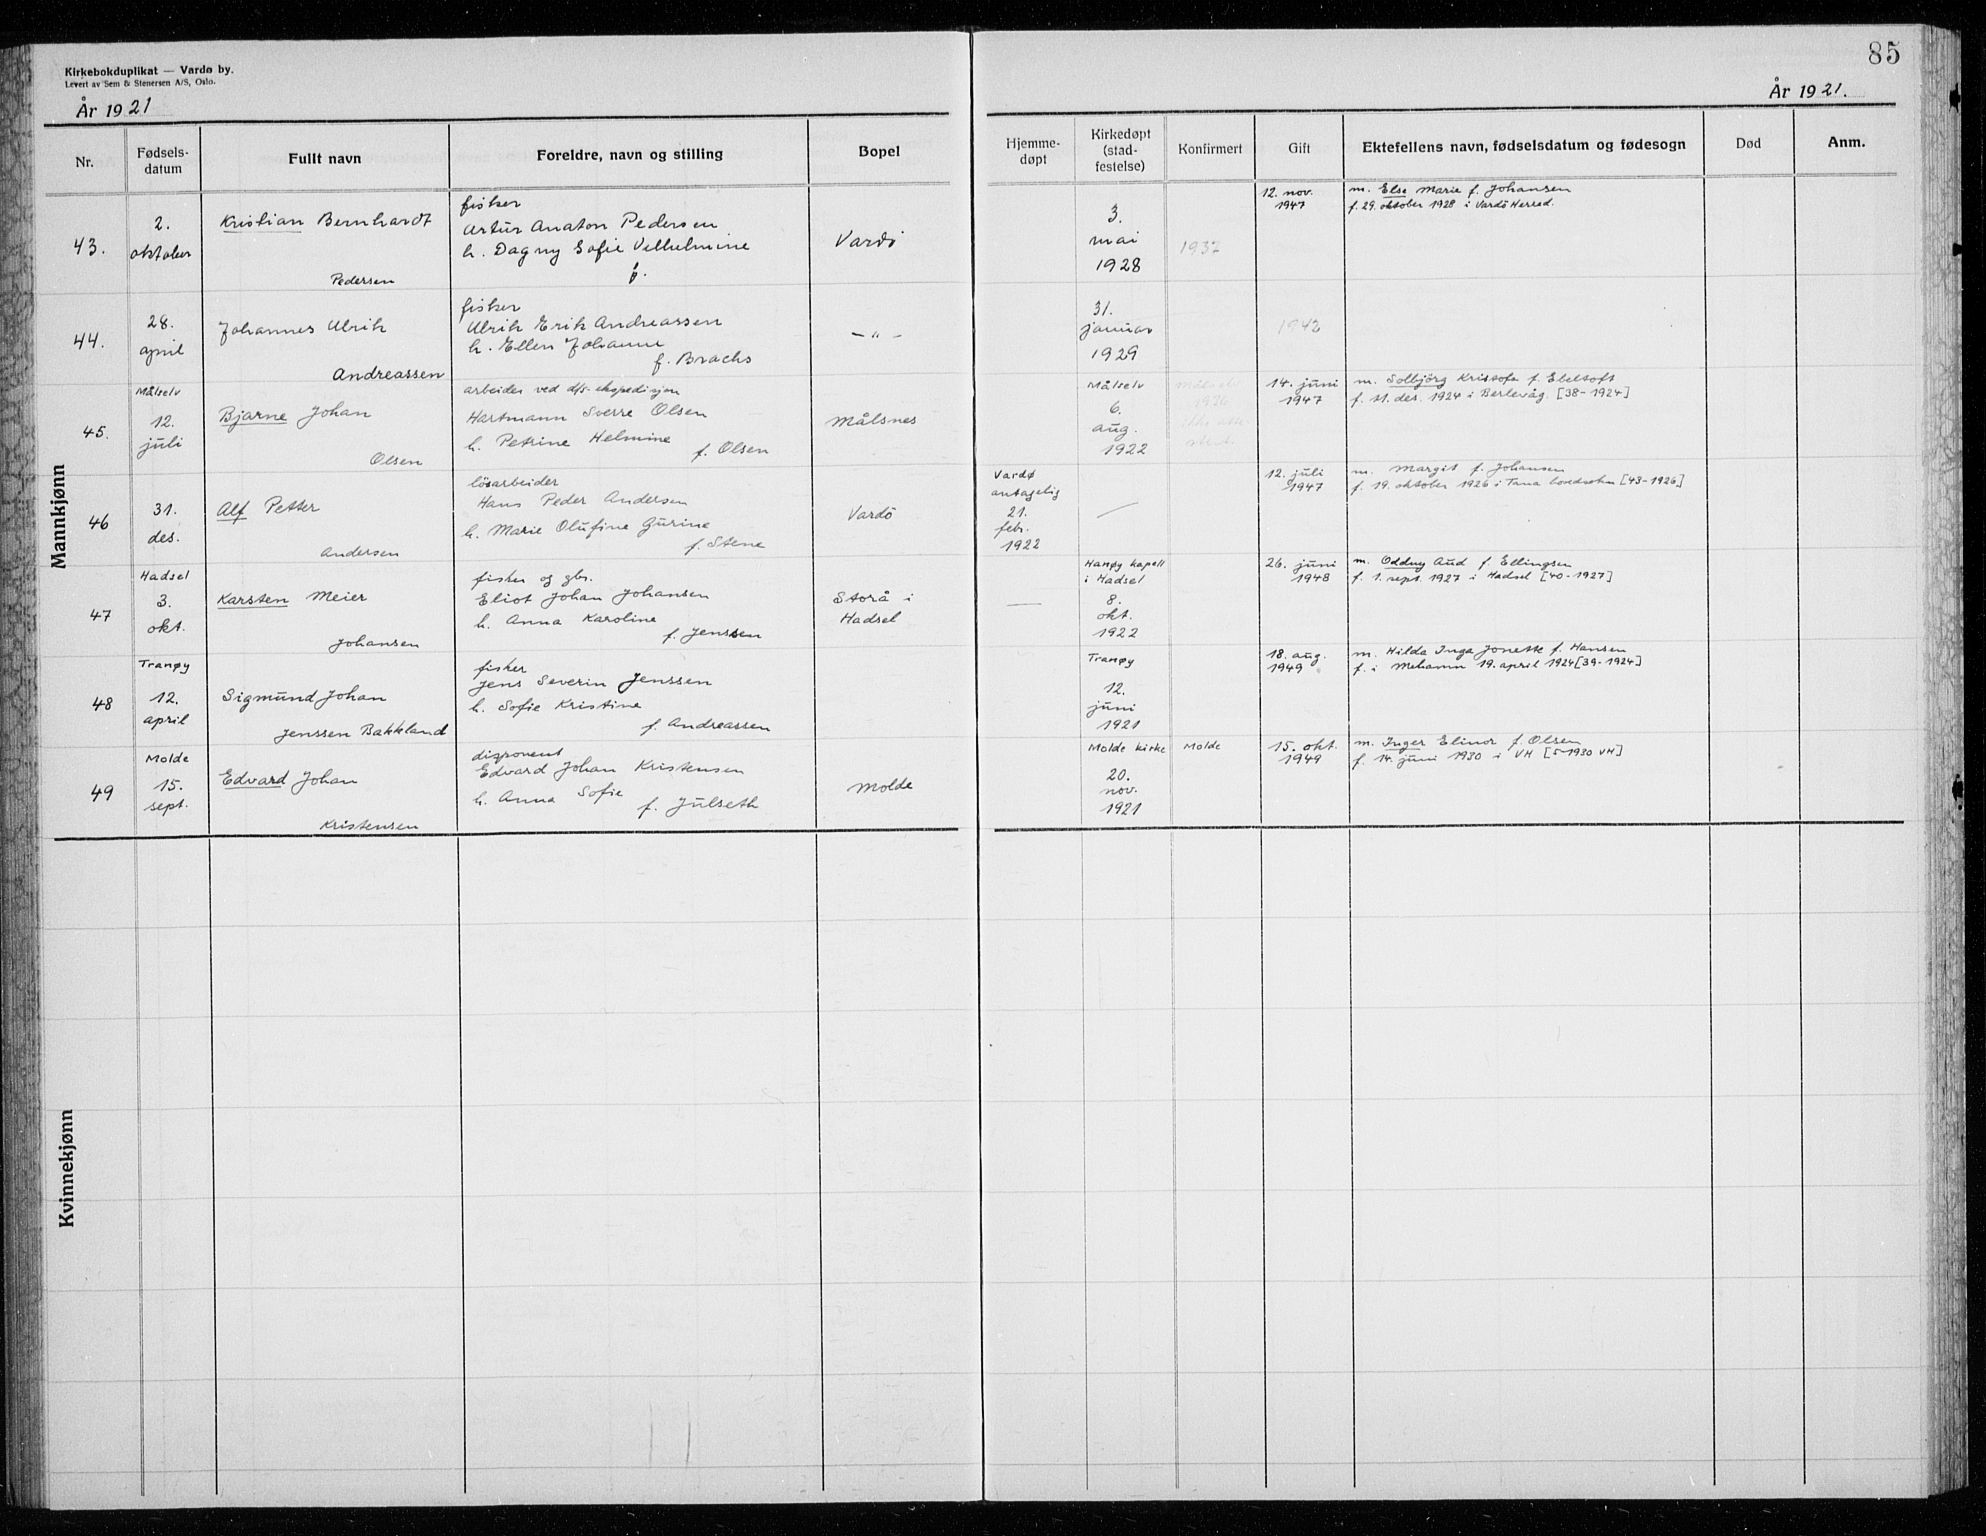 85
Kirkebokduplikat — Vardø by.
Levert av Sem & Stenersen A/S, Oslo.
År 1921
År 1921.
Nr.
Fødsels-
datum
Fullt navn
Foreldre, navn og stilling
Bopel
Hjemme-
døpt
Kirkedøpt
(stad-
festelse)
Konfirmert
Gift
Ektefellens navn, fødselsdatum og fødesogn
Død
Anm.
Mannkjønn
43.
2.
oktober
Kristian Bernhardt
Pedersen
fisker
Artur Anaton Pedersen
h. Dagny Sofie Vilhelmine
Vardö
3.
mai
1928
1937
12. nov.
1947
m. Else Marie f. Johansen
f. 29. oktober 1928 i Vardö Herred.
44.
28.
april
Johannes Ulrik
Andreassen
fisker
Ulrik Erik Andreassen
h. Ellen Johanne
f. Brachs
— „ —
31.
januar
1929
1942
45.
Målselv
12.
juli
Bjarne Johan
Olsen
arbeider ved d/s-ekspedisjon
Hartmann Sverre Olsen
h. Petrine Helmine
f. Olsen
Målsnes
Målselv
6.
aug.
1922
Målselv
1936
14. juni
1947
m. Solbjörg Kristofa f. Ebeltoft
f. 11. des. 1924 i Berlevåg. [38-1924]
46
31.
des.
Alf Petter
Andersen
lösarbeider
Hans Peder Andersen
h. Marie Olufine Gurine
f. Stene
Vardö
Vardø
antagelig
21.
febr.
1922
—
12. juli
1947
m. Margit f. Johansen
f. 19. oktober 1926 i Tana hovedsokn [43-1926]
47
Hadsel
3.
okt.
Karsten Meier
Johansen
fisker og gbr.
Eliot Johan Johansen
h. Anna Karoline
f. Jenssen
Storå i
Hadsel
—
Hanøy kapell
i Hadsel
8.
okt.
1922
26. juni
1948
m. Oddny Aud f. Ellingsen
f. 1. sept. 1927 i Hadsel [40-1927]
48
Tranøy
12.
april
Sigmund Johan
Jenssen Bakkland
fisker
Jens Severin Jenssen
h. Sofie Kristine
f. Andreassen
Tranøy
12.
juni
1921
18. aug.
1949
m. Hilda Inga Jonette f. Hansen
f. i Mehamn 19. april 1924 [39-1924]
49
Molde
15.
sept.
Edvard Johan
Kristensen
disponent
Edvard Johan Kristensen
h. Anna Sofie
f. Julseth
Molde
Molde kirke
20.
nov.
1921
Molde
15. okt.
1949
m. Inger Elinor f. Olsen
f. 14. juni 1930 i VH [5-1930 VH]
Kvinnekjønn